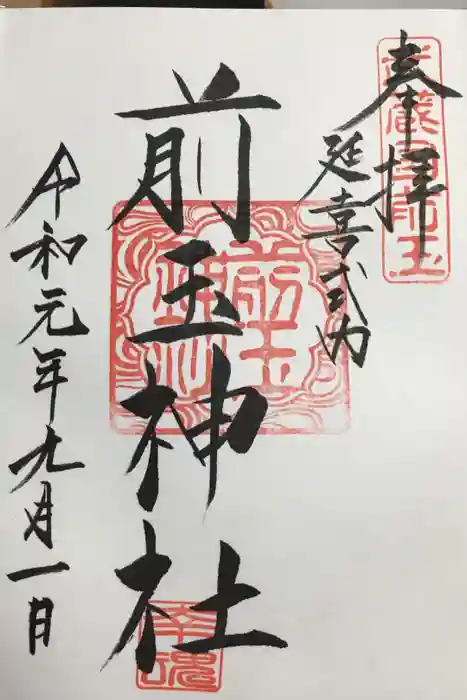 奉拝
延喜式内
前玉神社
令和元年九月一日
武蔵国前玉
幸魂